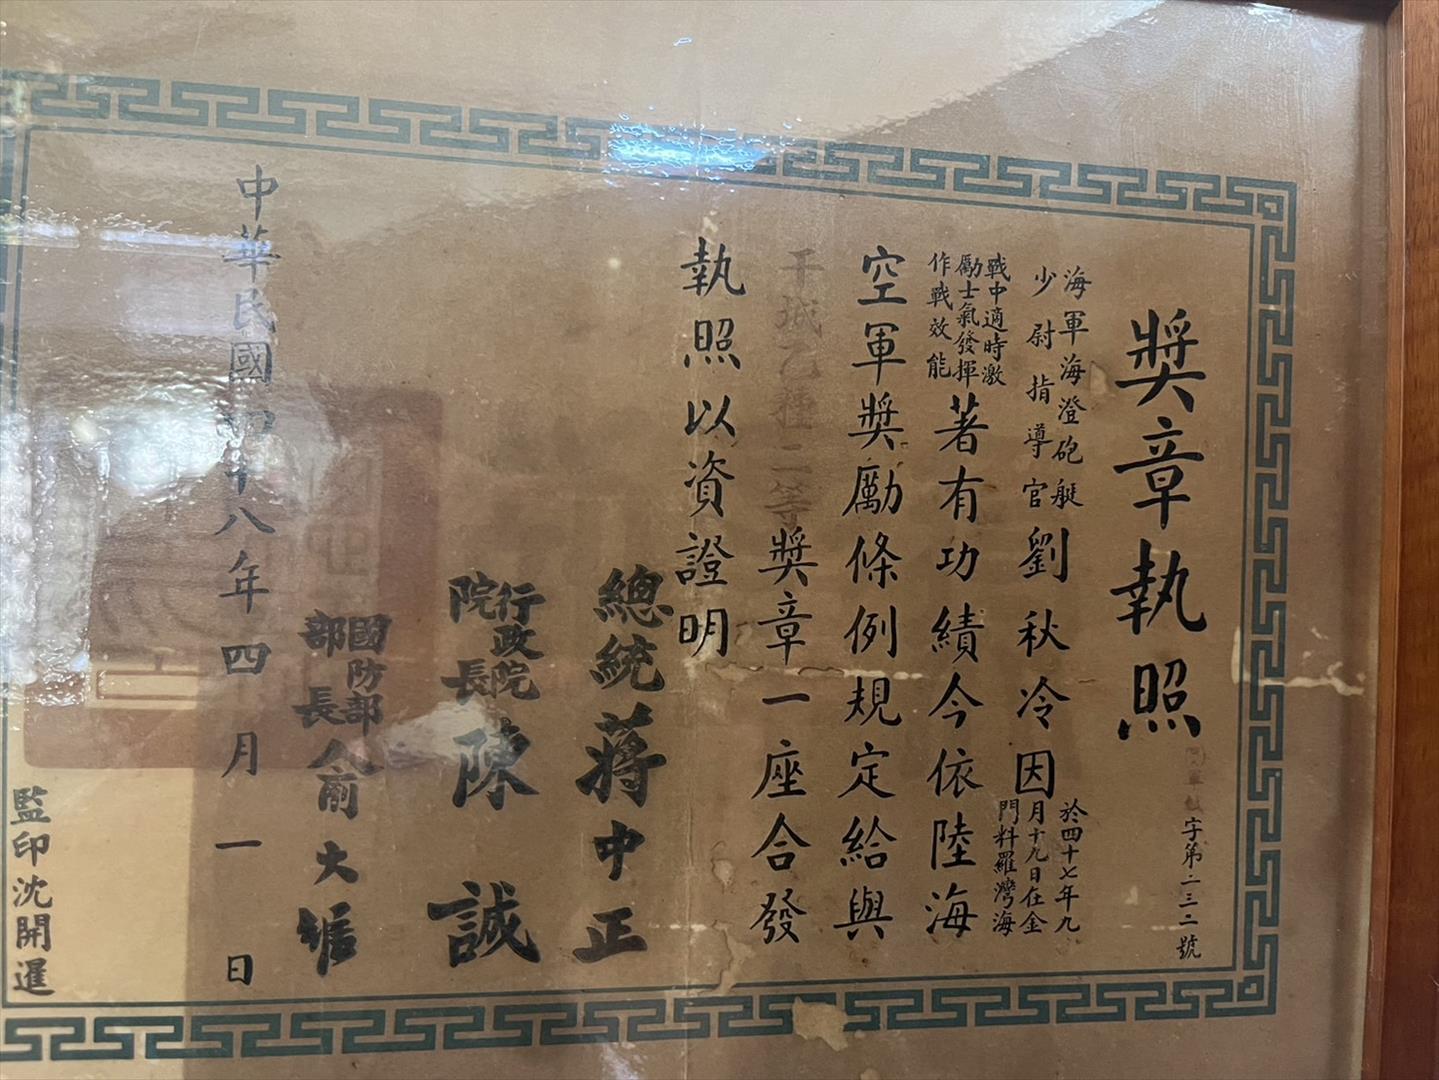 獎章執照
字第二三二號
海軍海澄砲艇
少尉指導官
劉秋冷因
於四十七年九
月十九日在金
門料羅灣海
戰中適時激
勵士氣發揮
作戰效能
著有功績今依陸海
空軍獎勵條例規定給與
干城乙種二等獎章一座合發
執照以資證明
總統蔣中正
行政院
院長陳誠
國防部
部長俞大維
中華民國四十八年四月一日
監印沈開暹